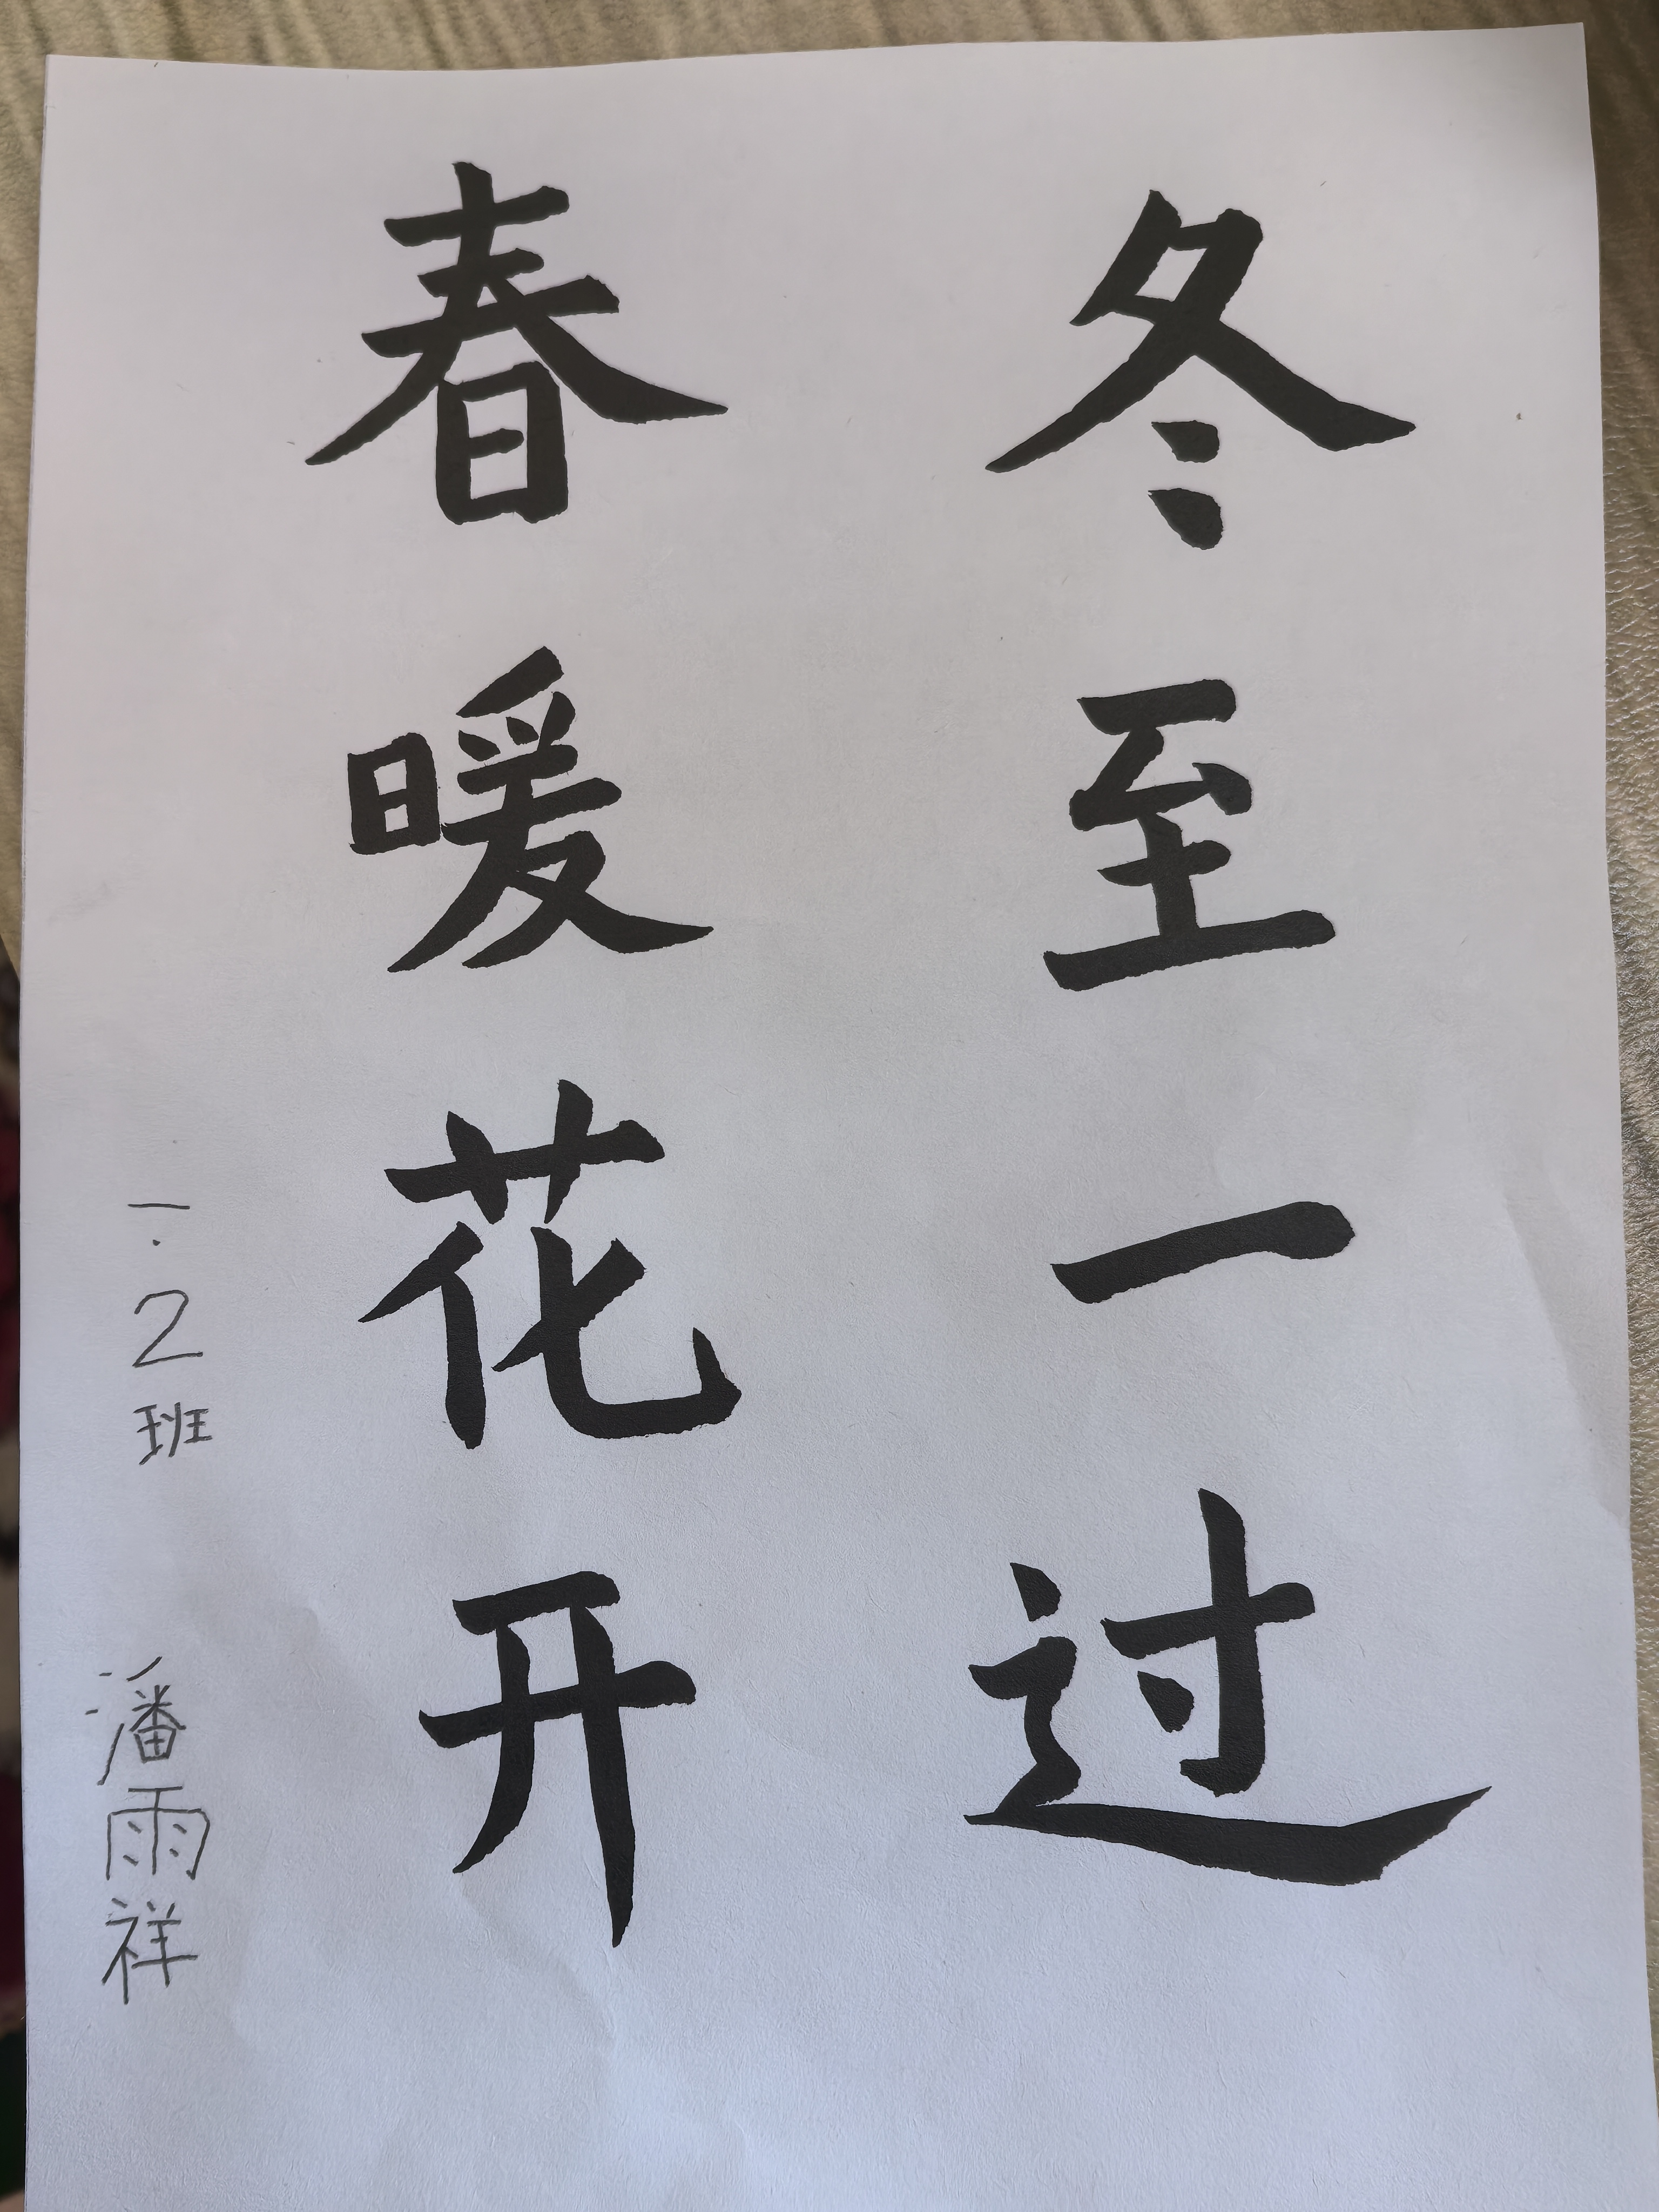 冬至一过
春暖花开
一.2班 潘雨祥